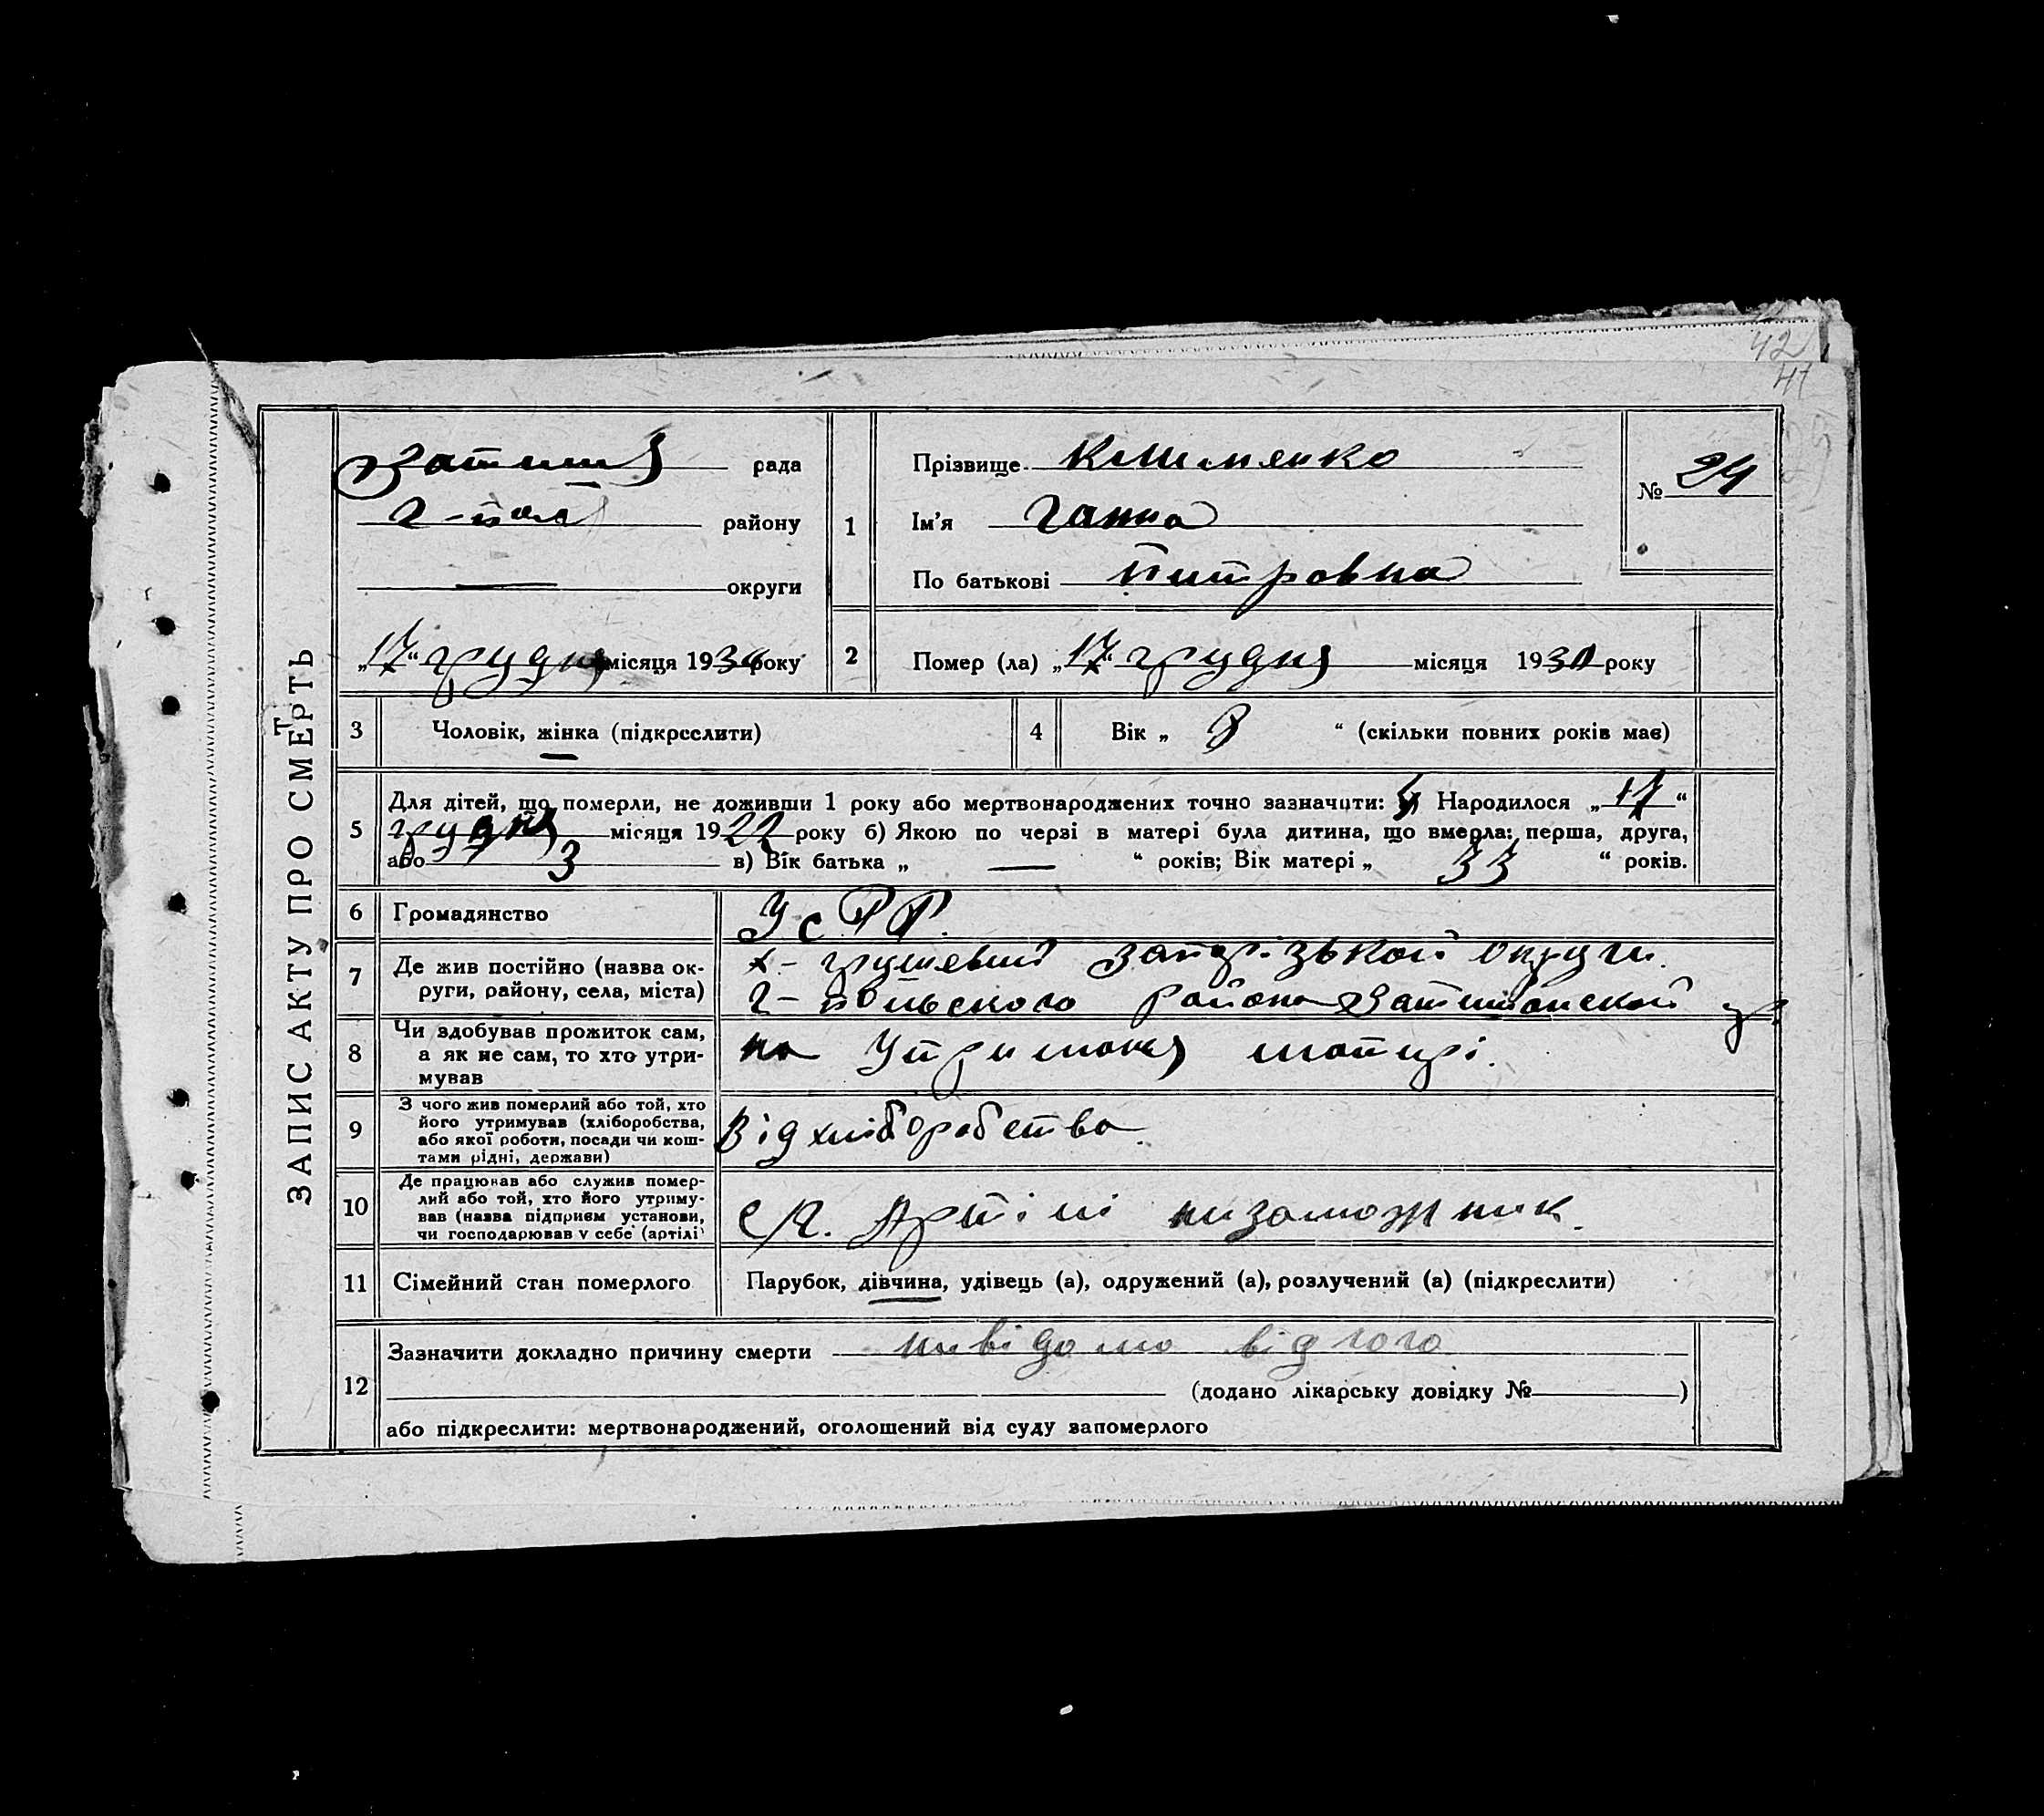 42
47
ЗАПИС АКТУ ПРО СМЕРТЬ
Затишшя рада
Г-Пол району
— округи
„17“ грудня місяця 1930 року
1
Прізвище Клименко
Ім'я Ганна
По батькові Питровна
№ 24
2
Помер (ла) „17“ грудня місяця 1930 року
3
Чоловік, жінка (підкреслити)
4
Вік „ 8 “ (скільки повних років має)
5
Для дітей, що померли, не доживши 1 року або мертвонароджених точно зазначити: Народилося „17“
грудня місяця 1922 року б) Якою по черзі в матері була дитина, що вмерла: перша, друга,
або 3 в) Вік батька „ — “ років; Вік матері „ 33 “ років.
6
Громадянство
УсРР.
7
Де жив постійно (назва ок-
руги, району, села, міста)
х- грушевий Запорізькой округи.
Г-Польского района Затишанской
8
Чи здобував прожиток сам,
а як не сам, то хто утри-
мував
на Утриманя матирі.
9
З чого жив померлий або той, хто
його утримував (хліборобства,
або якої роботи, посади чи кош-
тами рідні, держави)
Від хліборобства.
10
Де працював або служив помер-
лий або той, хто його утриму-
вав (назва підприєм установи,
чи господарював у себе (артілі)
Артілі низаможник.
11
Сімейний стан померлого
Парубок, дівчина, удівець (а), одружений (а), розлучений (а) (підкреслити)
12
Зазначити докладно причину смерти нивідомо від чого
(додано лікарську довідку № )
або підкреслити: мертвонароджений, оголошений від суду запомерлого